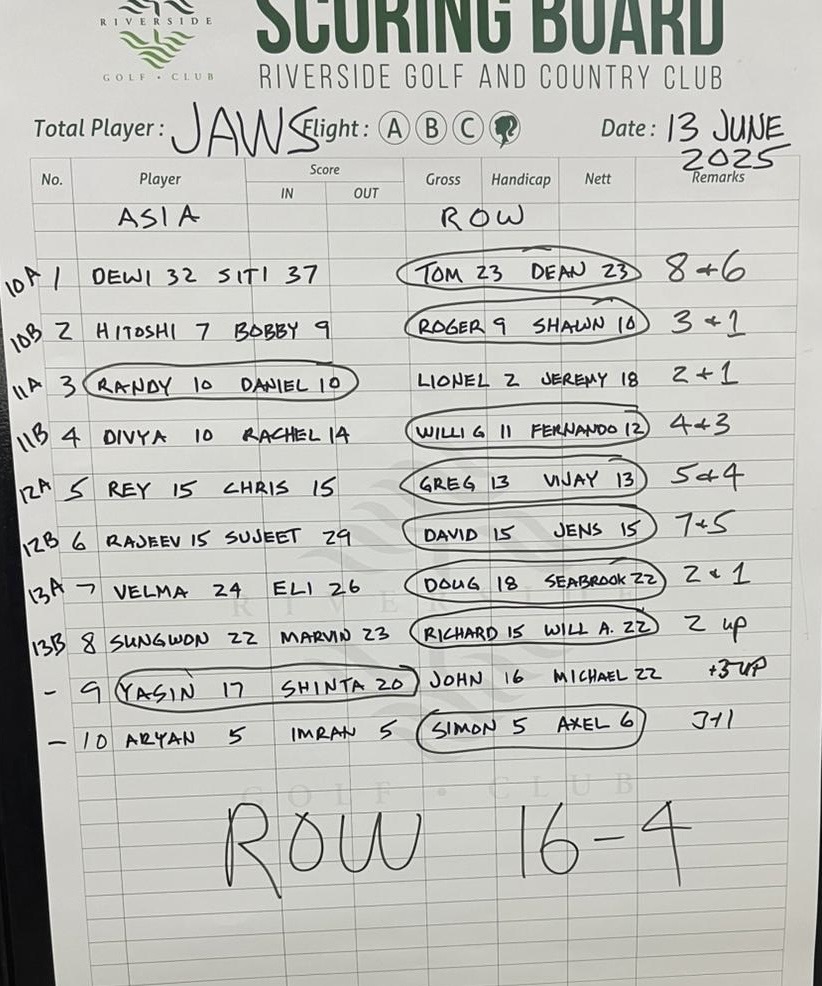 RIVERSIDE
GOLF • CLUB
SCORING BOARD
RIVERSIDE GOLF AND COUNTRY CLUB
Total Player : JAWS Flight : A B C Date : 13 JUNE 2025
No. Player Score IN OUT Gross Handicap Nett Remarks
ASIA ROW
10A 1 DEWI 32 SITI 37 TOM 23 DEAN 23 8+6
10B 2 HITOSHI 7 BOBBY 9 ROGER 9 SHAWN 10 3+1
11A 3 RANDY 10 DANIEL 10 LIONEL 2 JEREMY 18 2+1
11B 4 DIVYA 10 RACHEL 14 WILLI G 11 FERNANDO 12 4+3
12A 5 REY 15 CHRIS 15 GREG 13 VIJAY 13 5+4
12B 6 RAJEEV 15 SUJEET 29 DAVID 15 JENS 15 7+5
13A 7 VELMA 24 ELI 26 DOUG 18 SEABROOK 22 2+1
13B 8 SUNGWON 22 MARVIN 23 RICHARD 15 WILL A. 22 2 up
- 9 YASIN 17 SHINTA 20 JOHN 16 MICHAEL 22 +3 UP
- 10 ARYAN 5 IMRAN 5 SIMON 5 AXEL 6 3+1
RIVERSIDE
GOLF • CLUB
ROW 16-4